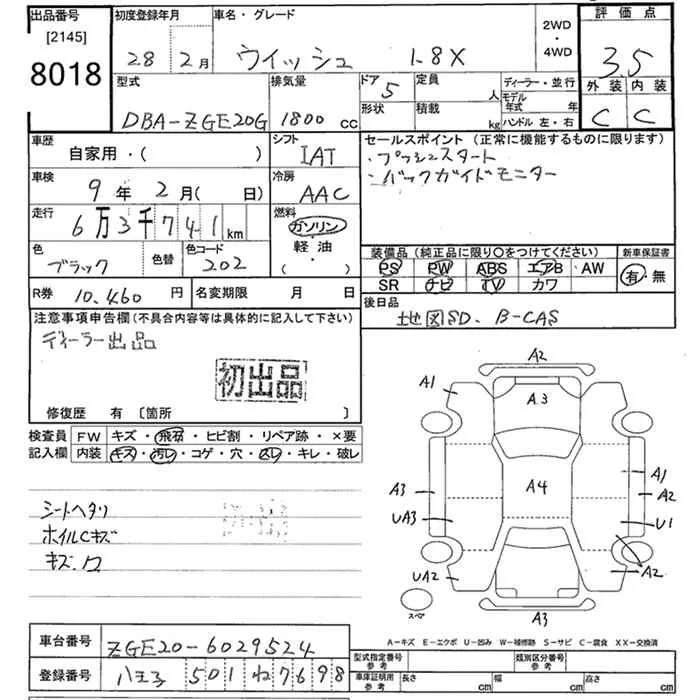 出品番号
[2145]
8018
初度登録年月
28年 2月
車名・グレード
ウィッシュ 1.8X
2WD・4WD
評価点
3.5
外装 内装
C C
型式
DBA-ZGE20G
排気量
1800 CC
ドア
5
形状
定員 人
積載 kg
ディーラー・並行
モデル年式 年
ハンドル 左・右
車歴
自家用・( )
シフト
IAT
車検
9年2月( 日)
冷房
AAC
走行
6万3千741km
燃料
ガソリン
軽油
・( )
色
ブラック
色替
色コード
202
R券 10,460円
名変期限 月 日
セールスポイント (正常に機能するものに限ります)
・プッシュスタート
・バックガイドモニター
装備品(純正品に限り○をつけてください)
新車保証書
PS PW ABS エアB AW
SR ナビ TV カワ
有・無
後日品
地図SD、B-CAS
注意事項申告欄(不具合内容等は具体的に記入して下さい)
ディーラー出品
初出品
修復歴 有 〔箇所 〕
検査員記入欄
FW キズ・飛石・ヒビ割・リペア跡・×要
内装 キズ・汚レ・コゲ・穴・スレ・キレ・破レ
シートヘタリ
ホイルCキズ
A2
A1
A3
A4
A3
A1
A2
UA3
U1
UA2
A2
A3
スペア
A-キズ E-エクボ U-凹み W-補修跡 S-サビ C-腐食 XX-交換済
車台番号
ZGE20-6029524
登録番号
八王子 501 ね 7698
型式指定番号 参考
類別区分番号 参考
車庫証明用 参考
長さ cm
幅 cm
高さ cm